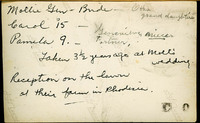 Mollie Gen - Bride One
grand daughter
Carol 15 -
Pamela 9. - Genevieve
Taken 3½ years ago at Moll's
wedding
Reception on the lawn
at their farm in Rhodesia.